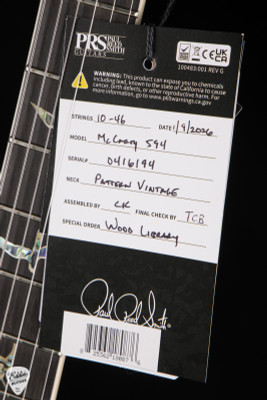 PRS PAUL REED SMITH GUITARS
100483:001 REV G
WARNING: This product can expose you to chemicals
including lead, known to the state of California to cause
cancer, birth defects, or other reproductive harm. For
more information, go to www.p65warnings.ca.gov
STRINGS 10-46 DATE 1/9/2026
MODEL McCarty 594
SERIAL# 0416194
NECK Pattern Vintage
ASSEMBLED BY CK FINAL CHECK BY TCB
SPECIAL ORDER Wood Library
Paul Reed Smith